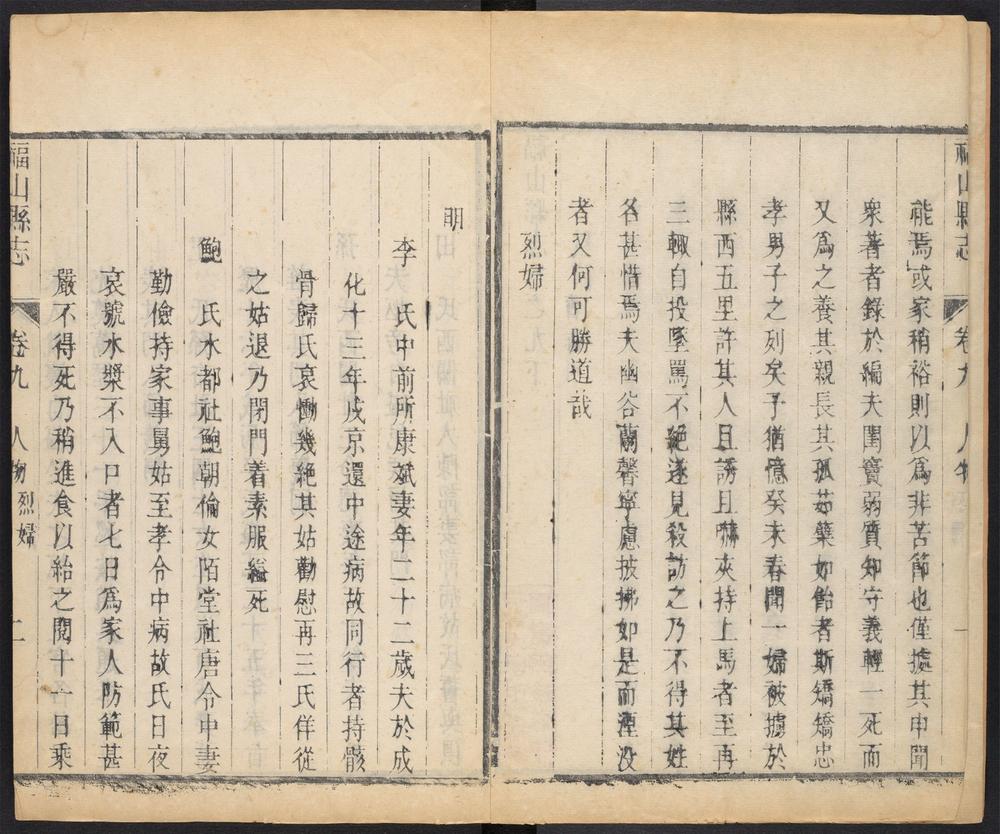 福山縣志 卷九 人物 一
能焉或家稍裕則以為非苦節也僅據其申聞
衆著者錄於編夫閨竇弱質知守義輕一死而
又為之養其親長其孤茹蘗如飴者斯矯矯忠
孝男子之列矣予猶憶癸未春聞一婦被擄於
縣西五里許其人且誘且嚇夾持上馬者至再
三輙自投墜罵不絕遂見殺訪之乃不得其姓
名甚惜焉夫幽谷蘭馨寧慮披拂如是而湮没
者又何可勝道哉
烈婦
明
李 氏中前所康斌妻年二十二歲夫於成
化十三年戍京還中途病故同行者持骸
骨歸氏哀慟幾絕其姑勸慰再三氏佯從
之姑退乃閉門着素服縊死
鮑 氏水都社鮑朝倫女陌堂社唐令中妻
勤儉持家事舅姑至孝令中病故氏日夜
哀號水漿不入口者七日為家人防範甚
嚴不得死乃稍進食以紿之閱十一日乘
福山縣志 卷九 人物烈婦 二